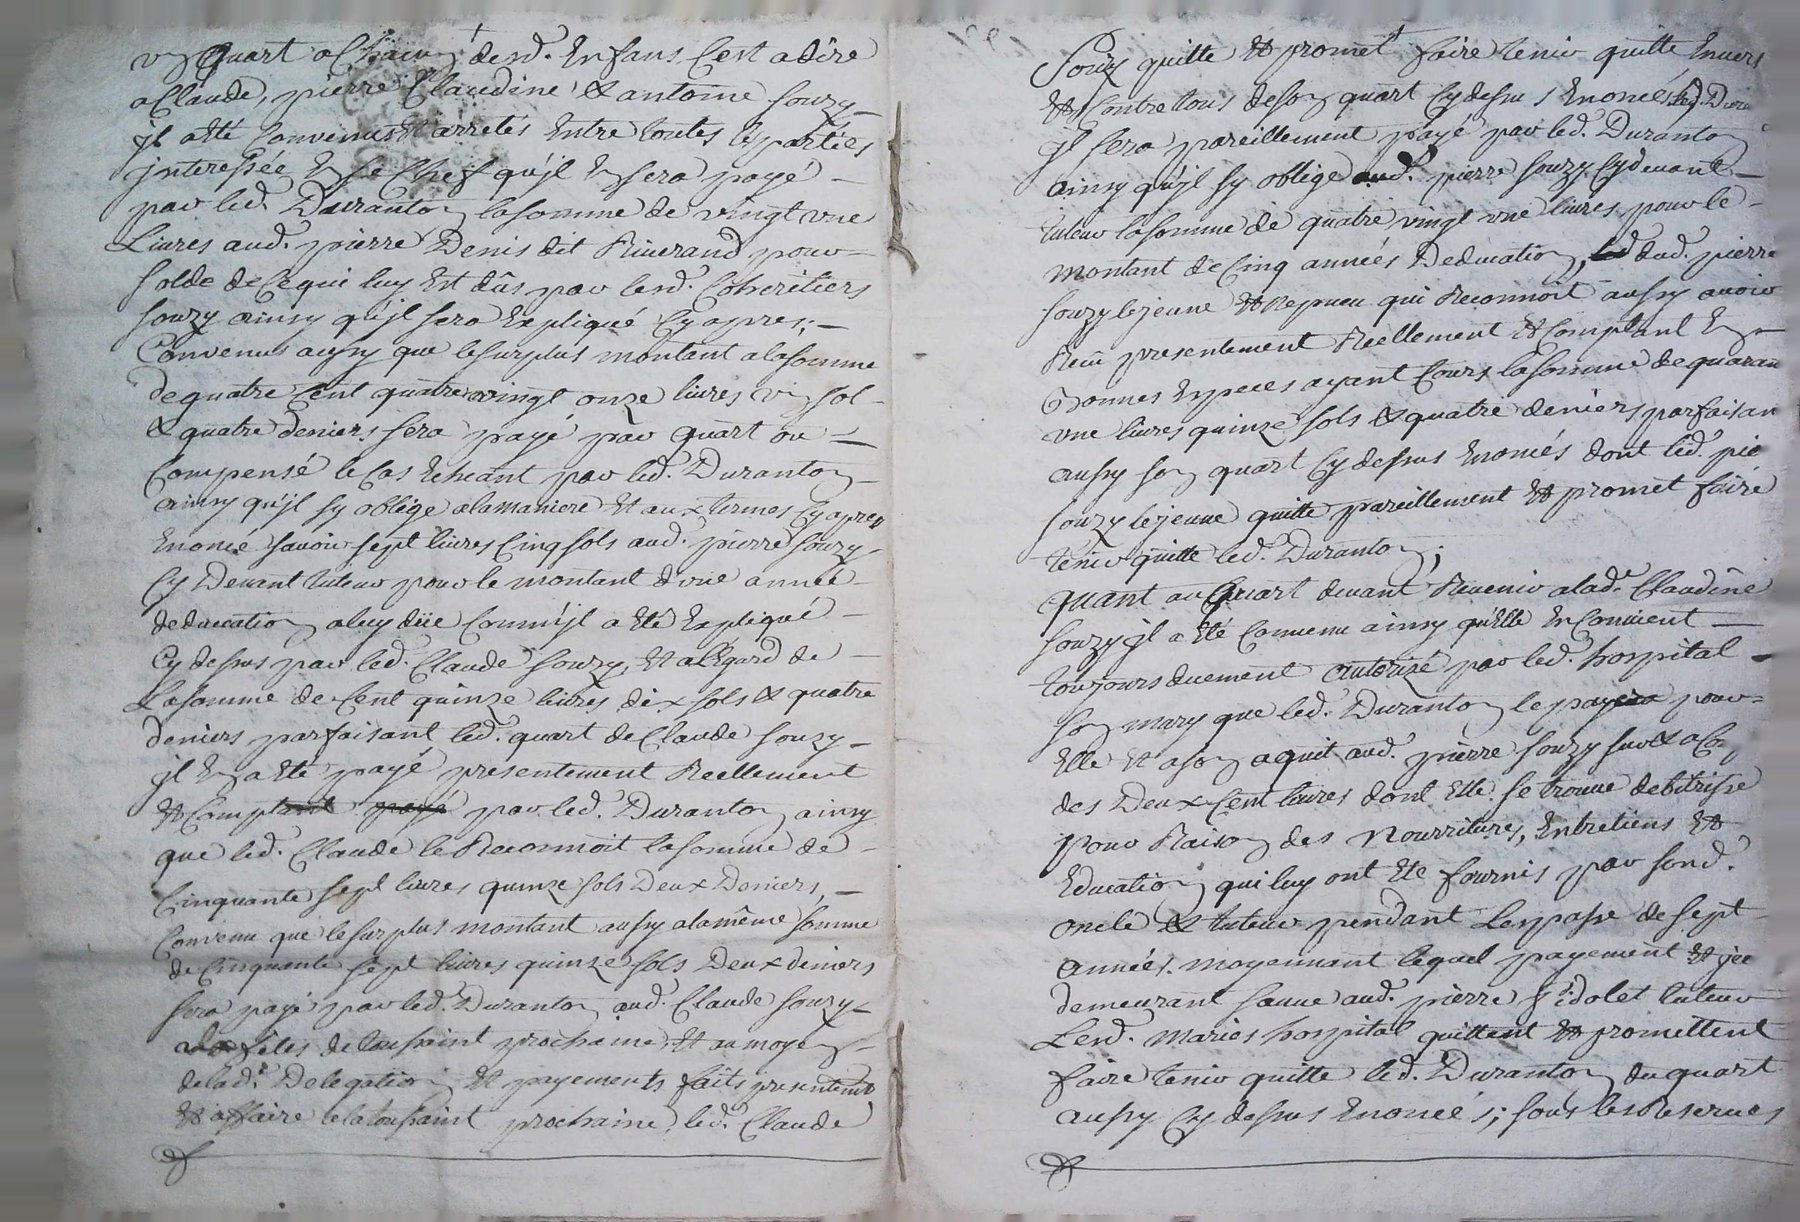 un Quart a Chacun desd. Enfans C'est a dire
a Claude, pierre Claudine & antoine souzy
jl a Eté Convenus Et arretés Entre toutes les parties
jnteressée En Ce Chef qu'jl En sera payé
par led. Duranton la somme de vingt vne
Livres aud. pierre Denis dit Riverand pour
solde de Ce qui luy Est dûs par lesd. Coheritiers
souzy ainsy qu'jl sera Expliqué Cy apres;
Convenus ausy que le surplus montant a la somme
de quatre Cent quatre vingt onze livres un sol
& quatre deniers sera payé par quart ou
Compensé le Cas Echeant par led. Duranton
ainsy qu'jl sy oblige a la maniere Et aux termes Cy apres
Enoncé savoir sept livres Cinq sols aud. pierre souzy
Cy Devant tuteur pour le montant d'vne année
deducation a luy düe Comm'jl a Eté Expliqué
Cy dessus par led. Claude souzy, Et a l'Egard de
La somme de Cent quinze livres dix sols & quatre
deniers parfaisant led. quart de Claude souzy
jl En a Eté payé presentement Reellement
& Comptant payé par led. Duranton ainsy
que led. Claude le Reconnoit la somme de
Cinquante sept livres quinze sols Deux Deniers,
Convenu que le surplus montant ausy a la même somme
de Cinquante sept livres quinze sols Deux deniers
sera payé par led. Duranton aud. Claude souzy
fêtes de toussaint prochaine Et au moyen
de lad.e Delegation Et payements faits presentemt
& affaire a la toussaint prochaine, led. Claude
Souzy quitte & promet faire tenir quitte Envers
& Contre tous de son quart Cy dessus Enoncés led. Duran
jl sera pareillement payé par led. Duranton
ainsy qu'jl sy oblige aud. pierre souzy Cy devant
tuteur la somme de quatre vingt vne livres pour le
montant de Cinq années Deducation, dud. pierre
souzy le jeune & Nepveu qui Reconnoît ausy avoir
Reçu presentement Reellement & Comptant En
Bonnes Especes ayant Cours la somme de quaran
vne livres quinze sols & quatre deniers parfaisan
ausy son quart Cy dessus Enoncés dont led. pie
souzy le jeune quitte pareillement & promet faire
tenir quitte led. Duranton;
Quant au Quart devant Revenir a lad.e Claudine
souzy jl a Eté Convenu ainsy qu'Elle En Convient
toujours duement autorizé par led. hospital
son mary que led. Duranton le payera pour
Elle Et a son aquit aud. pierre souzy sur & a Con
des Deux Cent livres dont Elle se trouve debitrise
pour Raison des Nourritures, Entretiens &
Education qui luy ont Eté fournis par sond.
oncle & tuteur pendant L'espasse de sept
années. moyennant lequel payement & jce
demeurant sauve aud. pierre tuteur
Lesd. mariés hospital quittent & promettent
faire tenir quitte led. Duranton du quart
ausy Cy dessus Enoncés; sous les Reserves